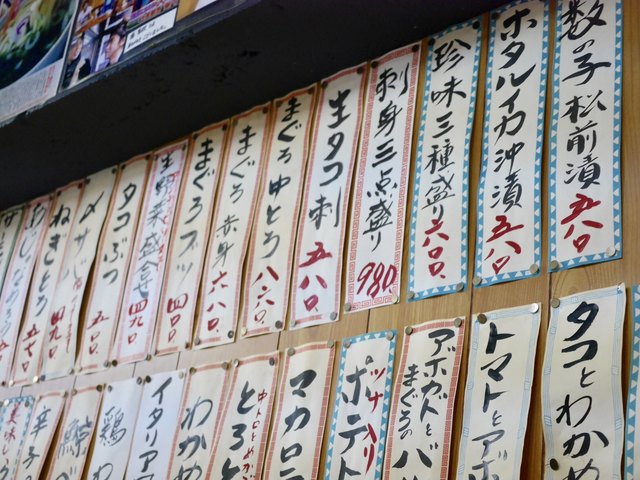 数の子松前漬 五八〇
ホタルイカ沖漬 五八〇
珍味三種盛り 六八〇
刺身三点盛り 980
生タコ刺 五八〇
まぐろ中とろ 八六〇
まぐろ赤身 六八〇
まぐろブツ 四八〇
生野菜盛合せ 四九〇
タコぶつ 五八〇
〆サバ
ねぎとろ 四九〇
タコとわかめ
トマトとアボ
アボガドとまぐろのバ
ツナ入りポテト
マカロニ
中トロとめか
とろと
わかめ
イタリア
鶏
鯨
辛子
美味し